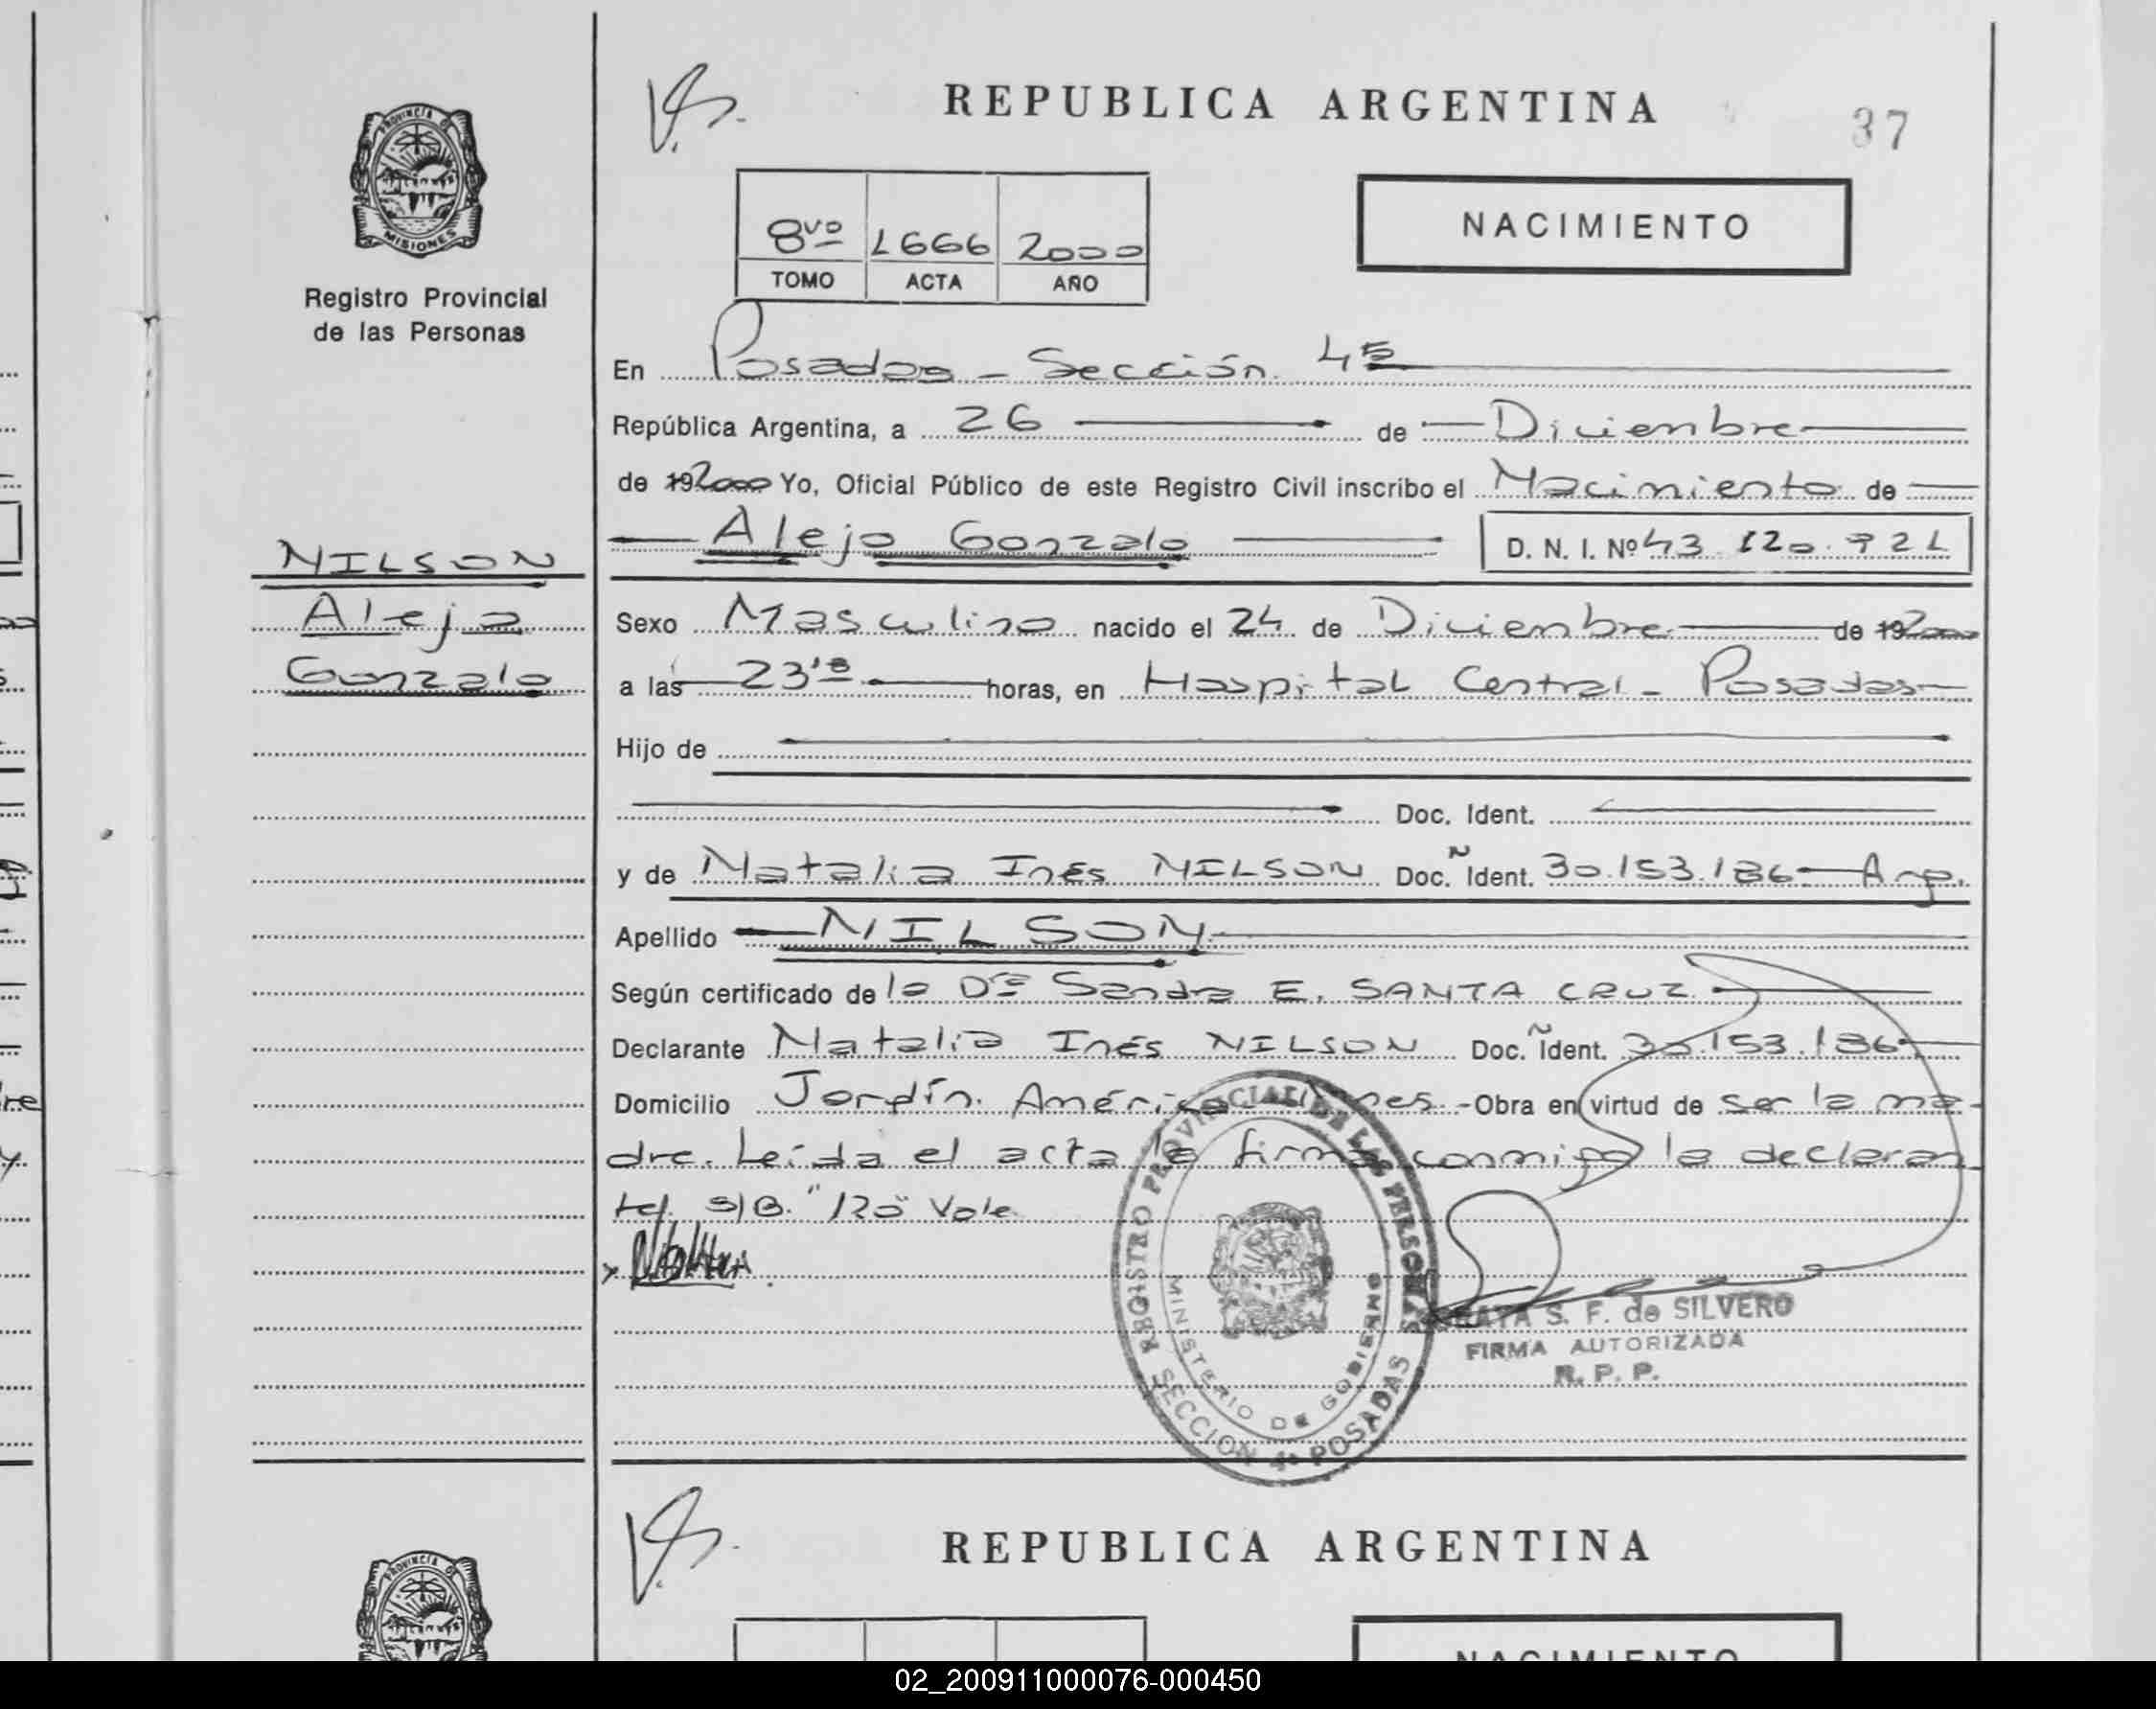 REPUBLICA ARGENTINA
37
PROVINCIA DE
MISIONES
Registro Provincial
de las Personas
8vo 1666 2000
TOMO ACTA AÑO
NACIMIENTO
En Posadas - Sección 4ª
República Argentina, a 26 de Diciembre
de 192000 Yo, Oficial Público de este Registro Civil inscribo el Nacimiento de
Alejo Gonzalo D. N. I. Nº 43.120.721
NILSON
Alejo
Gonzalo
Sexo Masculino nacido el 24 de Diciembre de 192000
a las 23 horas, en Hospital Central - Posadas
Hijo de
Doc. Ident.
y de Natalia Inés NILSON Doc. Ident. 30.153.186 - Arg.
Apellido NILSON
Según certificado de la Dra Sandra E. SANTA CRUZ
Declarante Natalia Inés NILSON Doc. Ident. 30.153.186
Domicilio Jardín América Mnes - Obra en virtud de ser la ma-
dre. Leída el acta la firma conmigo la declaran
te/ S/B. "120" Vale
REGISTRO PROVINCIAL DE LAS PERSONAS
MINISTERIO DE GOBIERNO
SECCION 4ª POSADAS
S. F. de SILVERO
FIRMA AUTORIZADA
R. P. P.
REPUBLICA ARGENTINA
PROVINCIA DE
NACIMIENTO
02_200911000076-000450